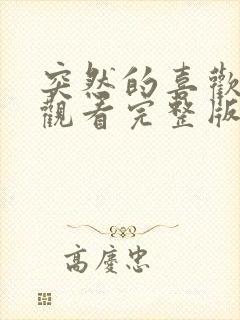 突然的喜歡
觀看完整版
高慶忠